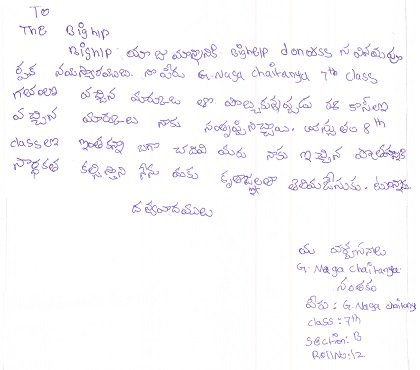 TO
The Bighlp
Bighlp యాజమాన్యానికి Bighelp donorss నవినయపూ
ర్వక నమస్కారములు. నా పేరు G. Naga chaitanya 7th class
గతంలో వచ్చిన మార్కులు తో పోల్చుకున్నప్పుడు ఈ క్లాస్‌లో
వచ్చిన మార్కులు నాకు సంతృప్తినిచ్చాయి. ప్రస్తుతం 8th
classలో ఇంతకన్నా బాగా చదివి మీరు నాకు ఇచ్చిన ప్రోత్సాహానికి
సార్థకత కల్పిస్తానని నేను మీకు కృతజ్ఞతలతో తెలియజేసుకుంటున్నాను
ధన్యవాదములు
G. Naga Chaitanya
సంతకం
పేరు: G. Naga chaitanya
class: 7th
Section: B
Roll No: 12